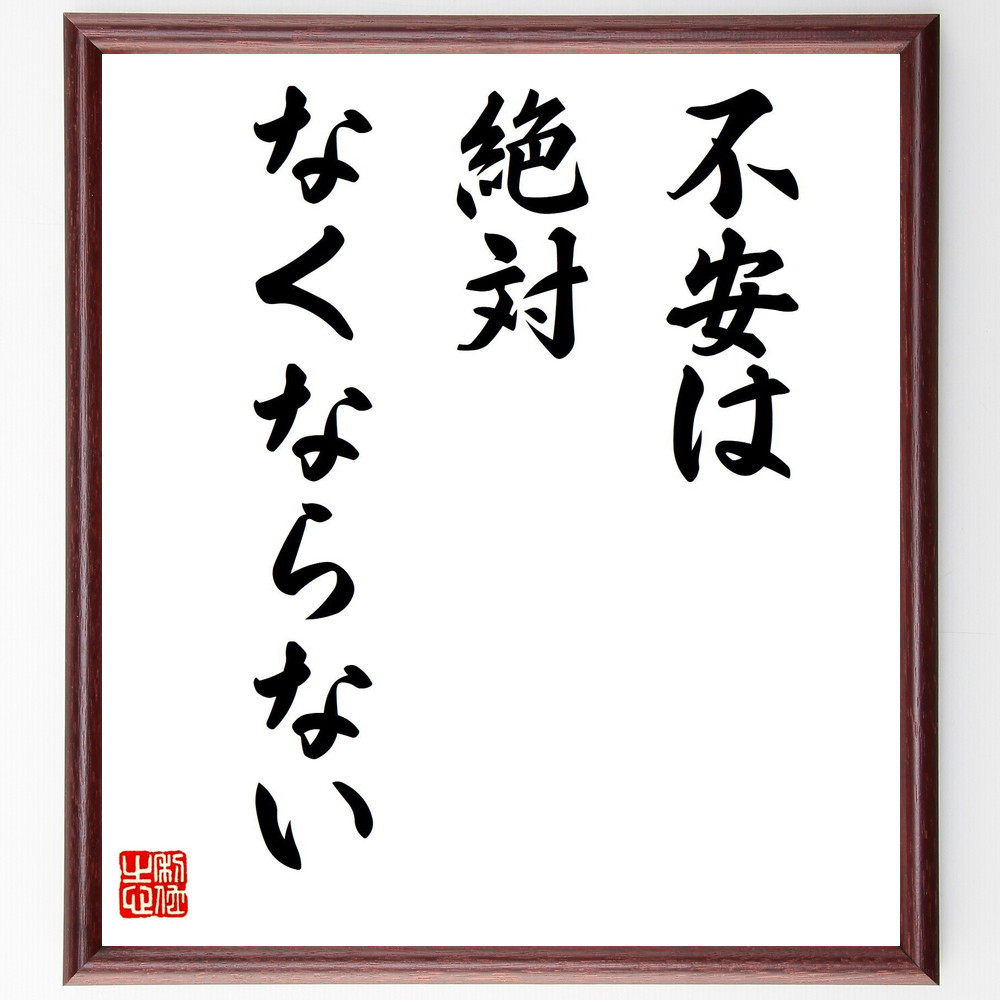 不安は
絶対
なくならない